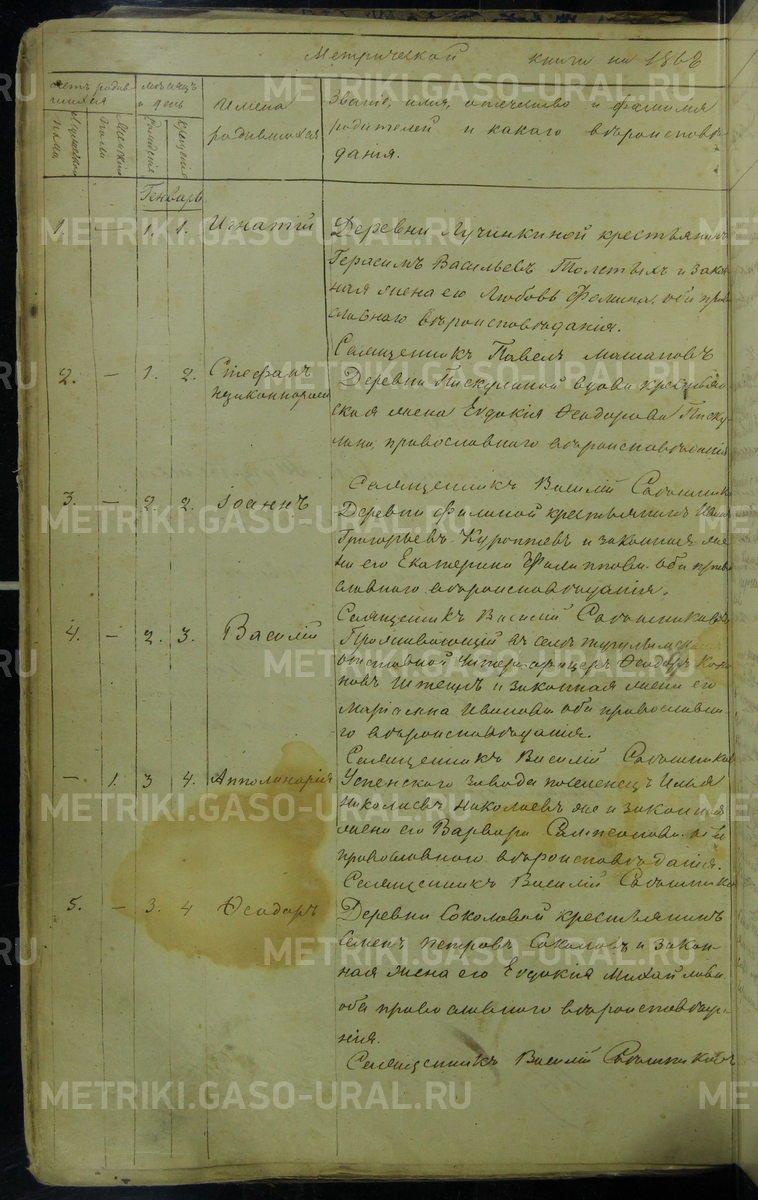 Метрической книги на 1868
счетъ родившихся
мѣсяцъ и день
Имена родившихся
Званіе, имя, отчество и фамилія
родителей и какого вѣроисповѣ-
данія.
Мужескій пола
Женскій пола
рожденія
крещенія
Генварь
1. — 1. 1. Игнатій
Деревни Лучинкиной крестьянинъ
Герасимъ Васильевъ Толстыхъ и закон
ная жена его Любовь Фомина, оба пра
славнаго вѣроисповѣданія.
Священникъ Павелъ
2. — 1. 2. Стефанъ
незаконнорож
Деревни Пискулиной вдова крестьян
ская жена Евдокія Ѳеодорова Писку
лина, православнаго вѣроисповѣданія
Священникъ Василій
3. — 2. 2. Іоаннъ
Деревни Филиной крестьянинъ Иванъ
Григорьевъ и законная же
на его Екатерина Филиппова оба право
славнаго вѣроисповѣданія.
Священникъ Василій
4. — 2. 3. Василій
Проживающій въ селѣ
отставной Унтеръ-офицеръ Ѳеодоръ
и законная жена его
Маріанна Иванова оба православна-
го вѣроисповѣданія.
Священникъ Василій
— 1. 3 4. Апполинарія
Успенскаго завода поселенецъ Илья
Николаевъ Николаевъ же и законная
жена его Варвара Самсонова оба
православнаго вѣроисповѣданія.
Священникъ Василій
5. — 3. 4 Ѳеодоръ
Деревни Соколовой крестьянинъ
Семенъ Петровъ Соколовъ и закон-
ная жена его Евдокія Михайлова
оба православнаго вѣроисповѣда-
нія.
Священникъ Василій
METRIKI.GASO-URAL.RU